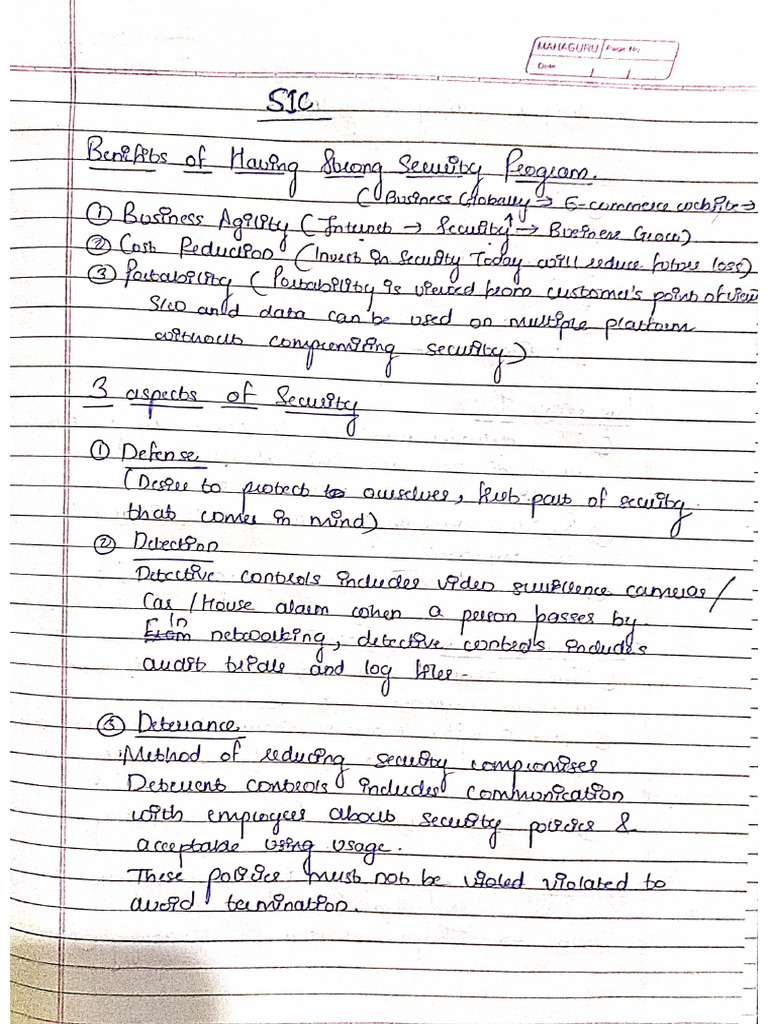 MAHAGURU Page No.
Date / /
SIC
Benifits of Having Strong Security Program.
( Business Globally → E-commerce website →
① Business Agility ( Internet → Security → Business Grow)
② Cost Reduction ( Invest in Security Today will reduce future loss)
③ Portability ( Portability is viewed from customer's point of view
S/W and data can be used on multiple platform
without compromising security)
3 aspects of Security
① Defense
(Desire to protect to ourselves, first part of security
that comes in mind)
② Detection
Detective controls includes video survillence cameras /
Car / House alarm when a person passes by.
In
From networking, detective controls includes
audit trials and log files.
③ Deterrance
Method of reducing security compromises
Deterrent controls includes communication
with employees about security policies &
acceptable using usage.
These policies must not be violed violated to
avoid termination.